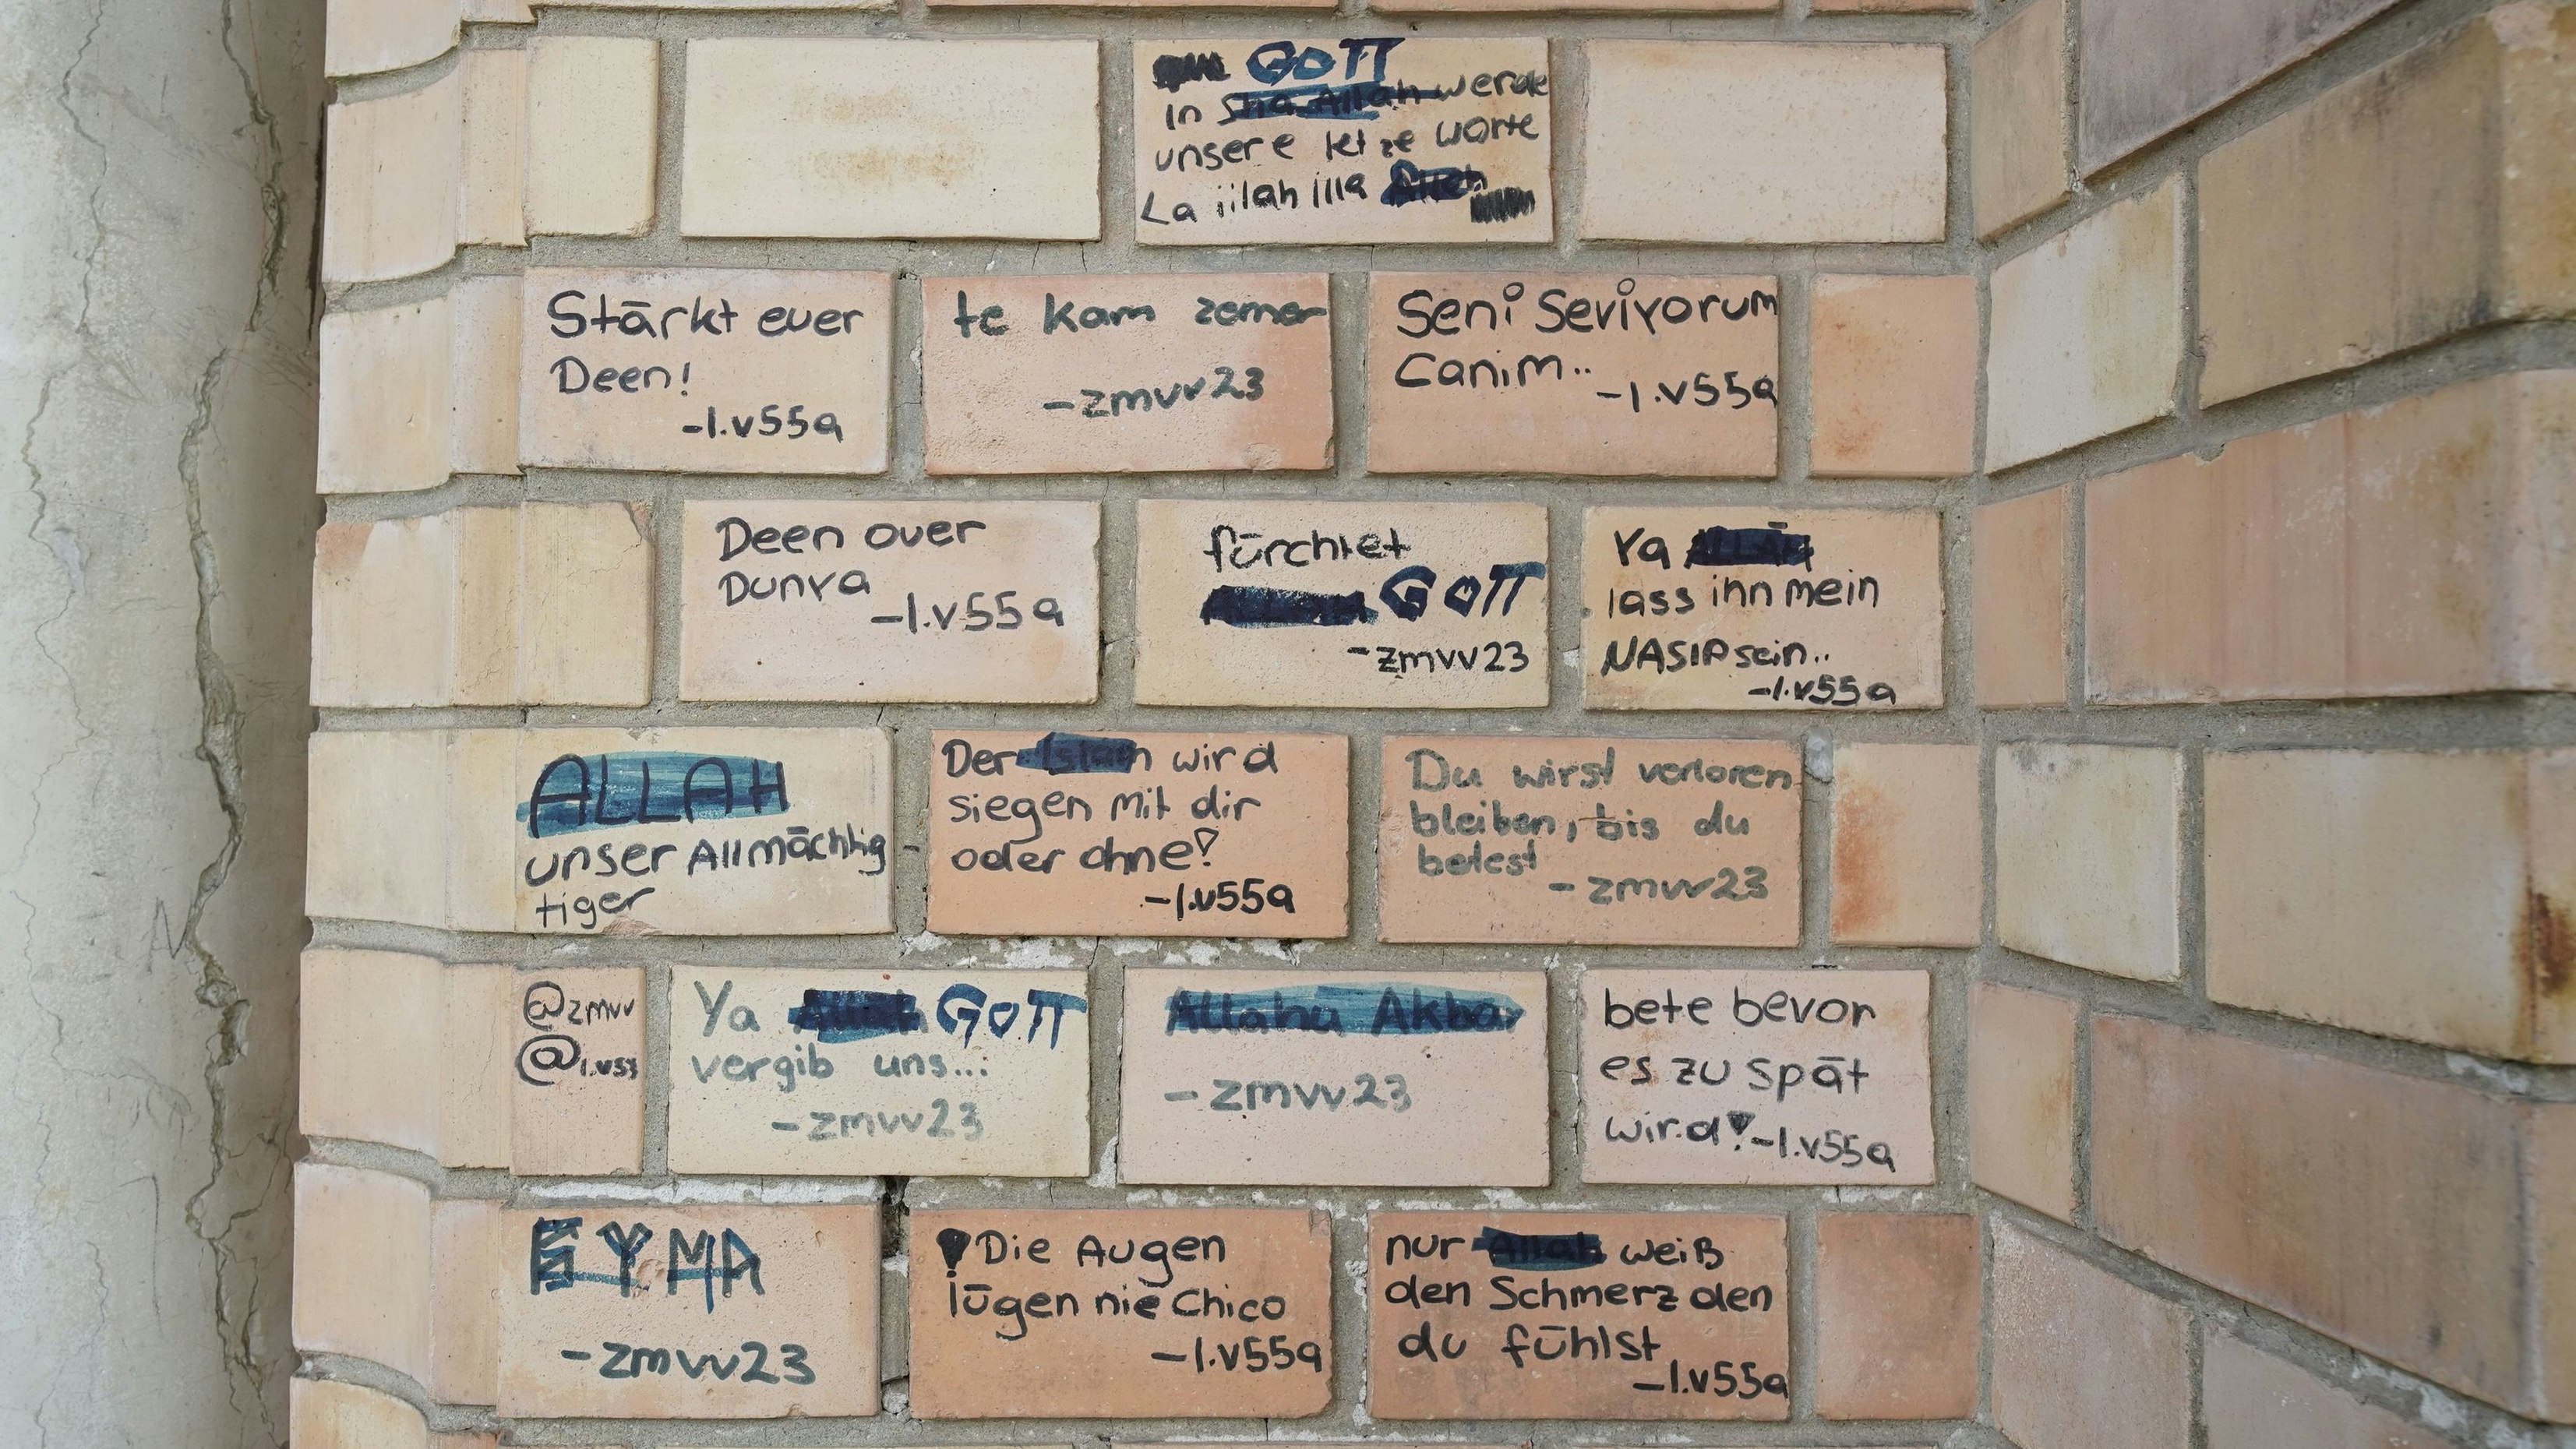 GOTT
In Sha Allah werde
unsere letze worte
La iilah illa Allah
Stärkt euer
Deen!
-1.v55a
te kam zemer
-zmvv23
Seni Seviyorum
Canim..
-1.v55a
Deen over
Dunya
-1.v55a
fürchtet
GOTT
-zmvv23
Ya ALLAH
lass ihn mein
NASIP sein..
-1.v55a
ALLAH
unser Allmächtig-
tiger
Der Islam wird
siegen mit dir
oder ohne!
-1.v55a
Du wirst verloren
bleiben, bis du
betest
-zmvv23
@zmvv
@1.v55
Ya Allah GOTT
vergib uns...
-zmvv23
Allahu Akbar
-zmvv23
bete bevor
es zu spät
wird!
-1.v55a
EYMA
-zmvv23
!Die Augen
lügen nie Chico
-1.v55a
nur Allah weiß
den Schmerz den
du fühlst
-1.v55a